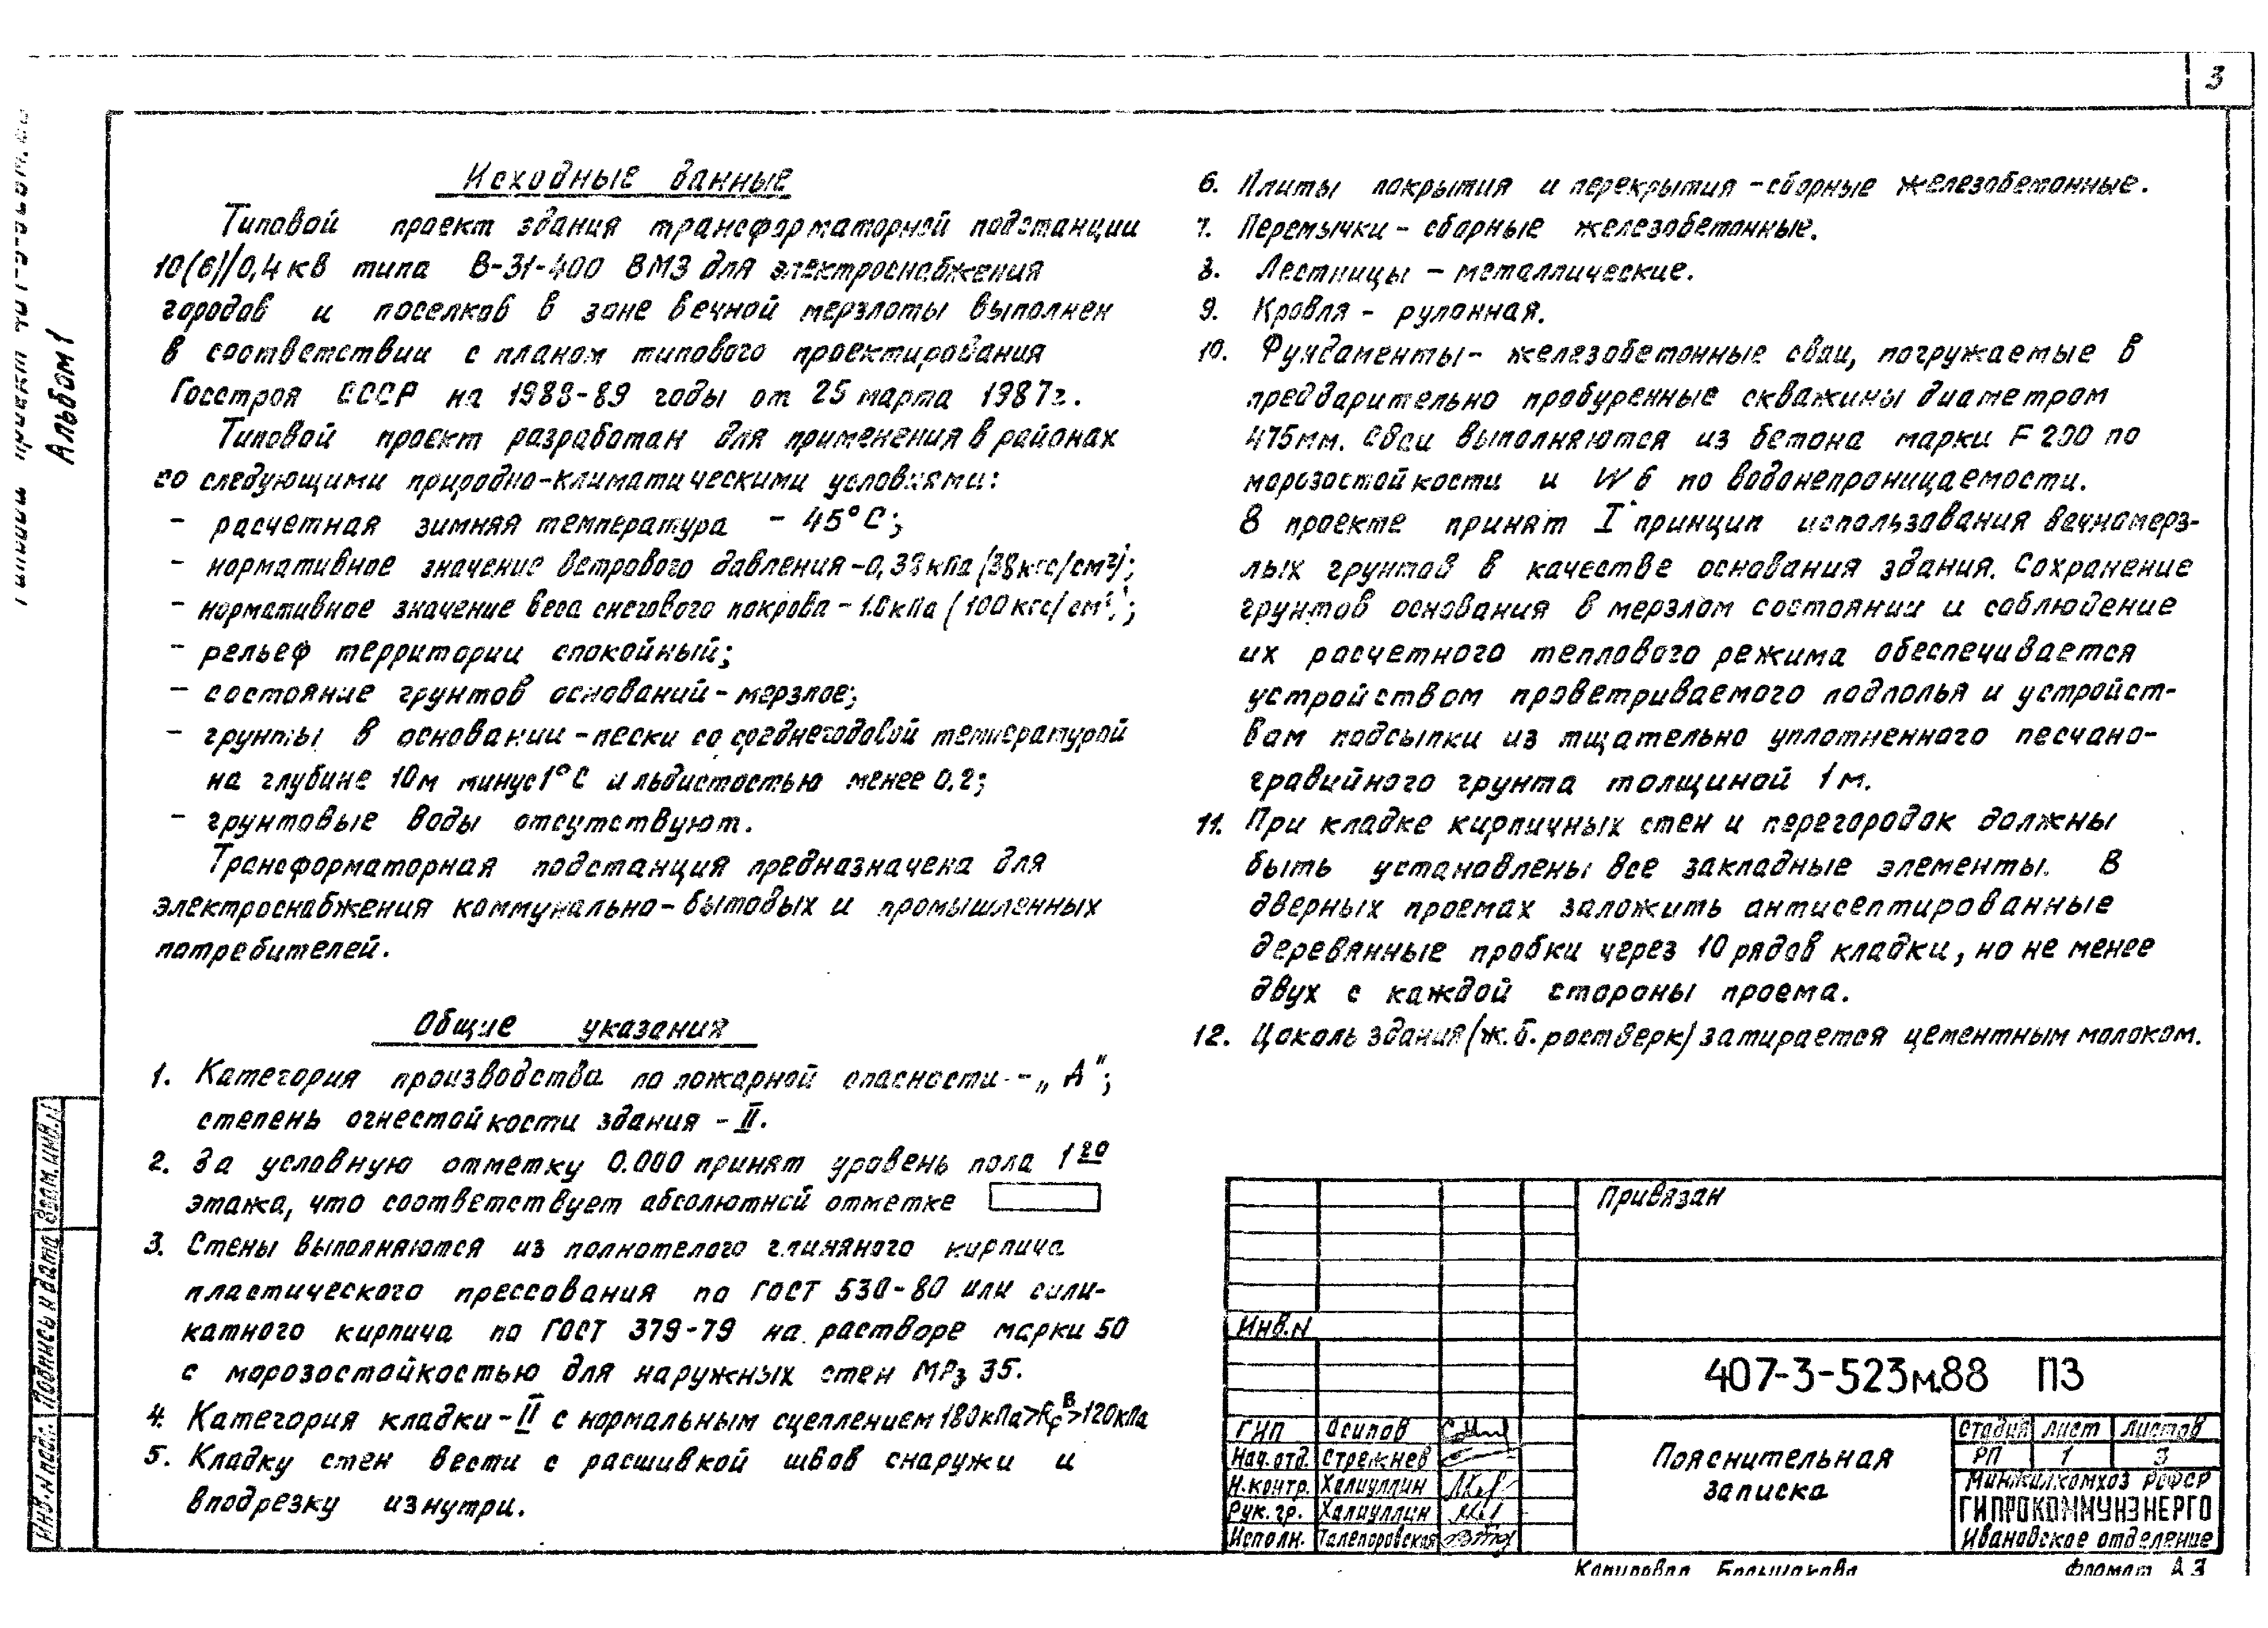 3
Альбом 1
Исходные данные
Типовой проект здания трансформаторной подстанции
10(6)/0,4кв типа В-31-400 ВМЗ для электроснабжения
городов и поселков в зоне вечной мерзлоты выполнен
в соответствии с планом типового проектирования
Госстроя СССР на 1988-89 годы от 25 марта 1987г.
Типовой проект разработан для применения в районах
со следующими природно-климатическими условиями:
- расчетная зимняя температура - 45°С;
- нормативное значение ветрового давления-0,38кПа(38кгс/см²);
- нормативное значение веса снегового покрова-1.0кПа(100кгс/см²);
- рельеф территории спокойный;
- состояние грунтов оснований-мерзлое;
- грунты в основании-пески со среднегодовой температурой
на глубине 10м минус 1°С и льдистостью менее 0,2;
- грунтовые воды отсутствуют.
Трансформаторная подстанция предназначена для
электроснабжения коммунально-бытовых и промышленных
потребителей.
Общие указания
1. Категория производства по пожарной опасности-„А";
степень огнестойкости здания - II.
2. За условную отметку 0.000 принят уровень пола 1го
этажа, что соответствует абсолютной отметке
3. Стены выполняются из полнотелого глиняного кирпича
пластического прессования по ГОСТ 530-80 или сили-
катного кирпича по ГОСТ 379-79 на растворе марки 50
с морозостойкостью для наружных стен МРз 35.
4. Категория кладки-II с нормальным сцеплением 180кПа>RсВ>120кПа
5. Кладку стен вести с расшивкой швов снаружи и
вподрезку изнутри.
6. Плиты покрытия и перекрытия-сборные железобетонные.
7. Перемычки-сборные железобетонные.
8. Лестницы - металлические.
9. Кровля - рулонная.
10. Фундаменты-железобетонные сваи, погружаемые в
предварительно пробуренные скважины диаметром
475мм. Сваи выполняются из бетона марки F 200 по
морозостойкости и W 6 по водонепроницаемости.
В проекте принят I принцип использования вечномерз-
лых грунтов в качестве основания здания. Сохранение
грунтов основания в мерзлом состоянии и соблюдение
их расчетного теплового режима обеспечивается
устройством проветриваемого подполья и устройст-
вом подсыпки из тщательно уплотненного песчано-
гравийного грунта толщиной 1м.
11. При кладке кирпичных стен и перегородок должны
быть установлены все закладные элементы. В
дверных проемах заложить антисептированные
деревянные пробки через 10 рядов кладки, но не менее
двух с каждой стороны проема.
12. Цоколь здания(ж.б. ростверк)затирается цементным молоком.
Привязан
Инв.N
407-3-523м.88 ПЗ
ГИП Осипов
Нач.отд. Стрежнев
Н.контр. Халиуллин
Рук.гр. Халиуллин
Исполн. Талепоровская
Пояснительная
записка
Стадия Лист Листов
РП 1 3
Минжилкомхоз РСФСР
ГИПРОКОММУНЭНЕРГО
Ивановское отделение
Инв.N подл. Подпись и дата Взам.инв.N
Копировал Большакова Формат А3